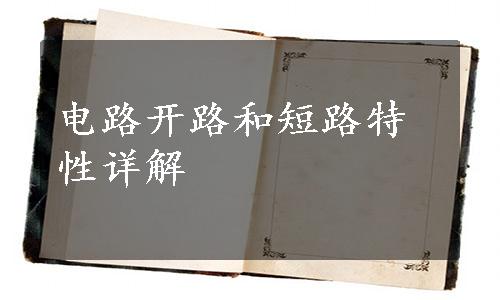 电路开路和短路特
性详解